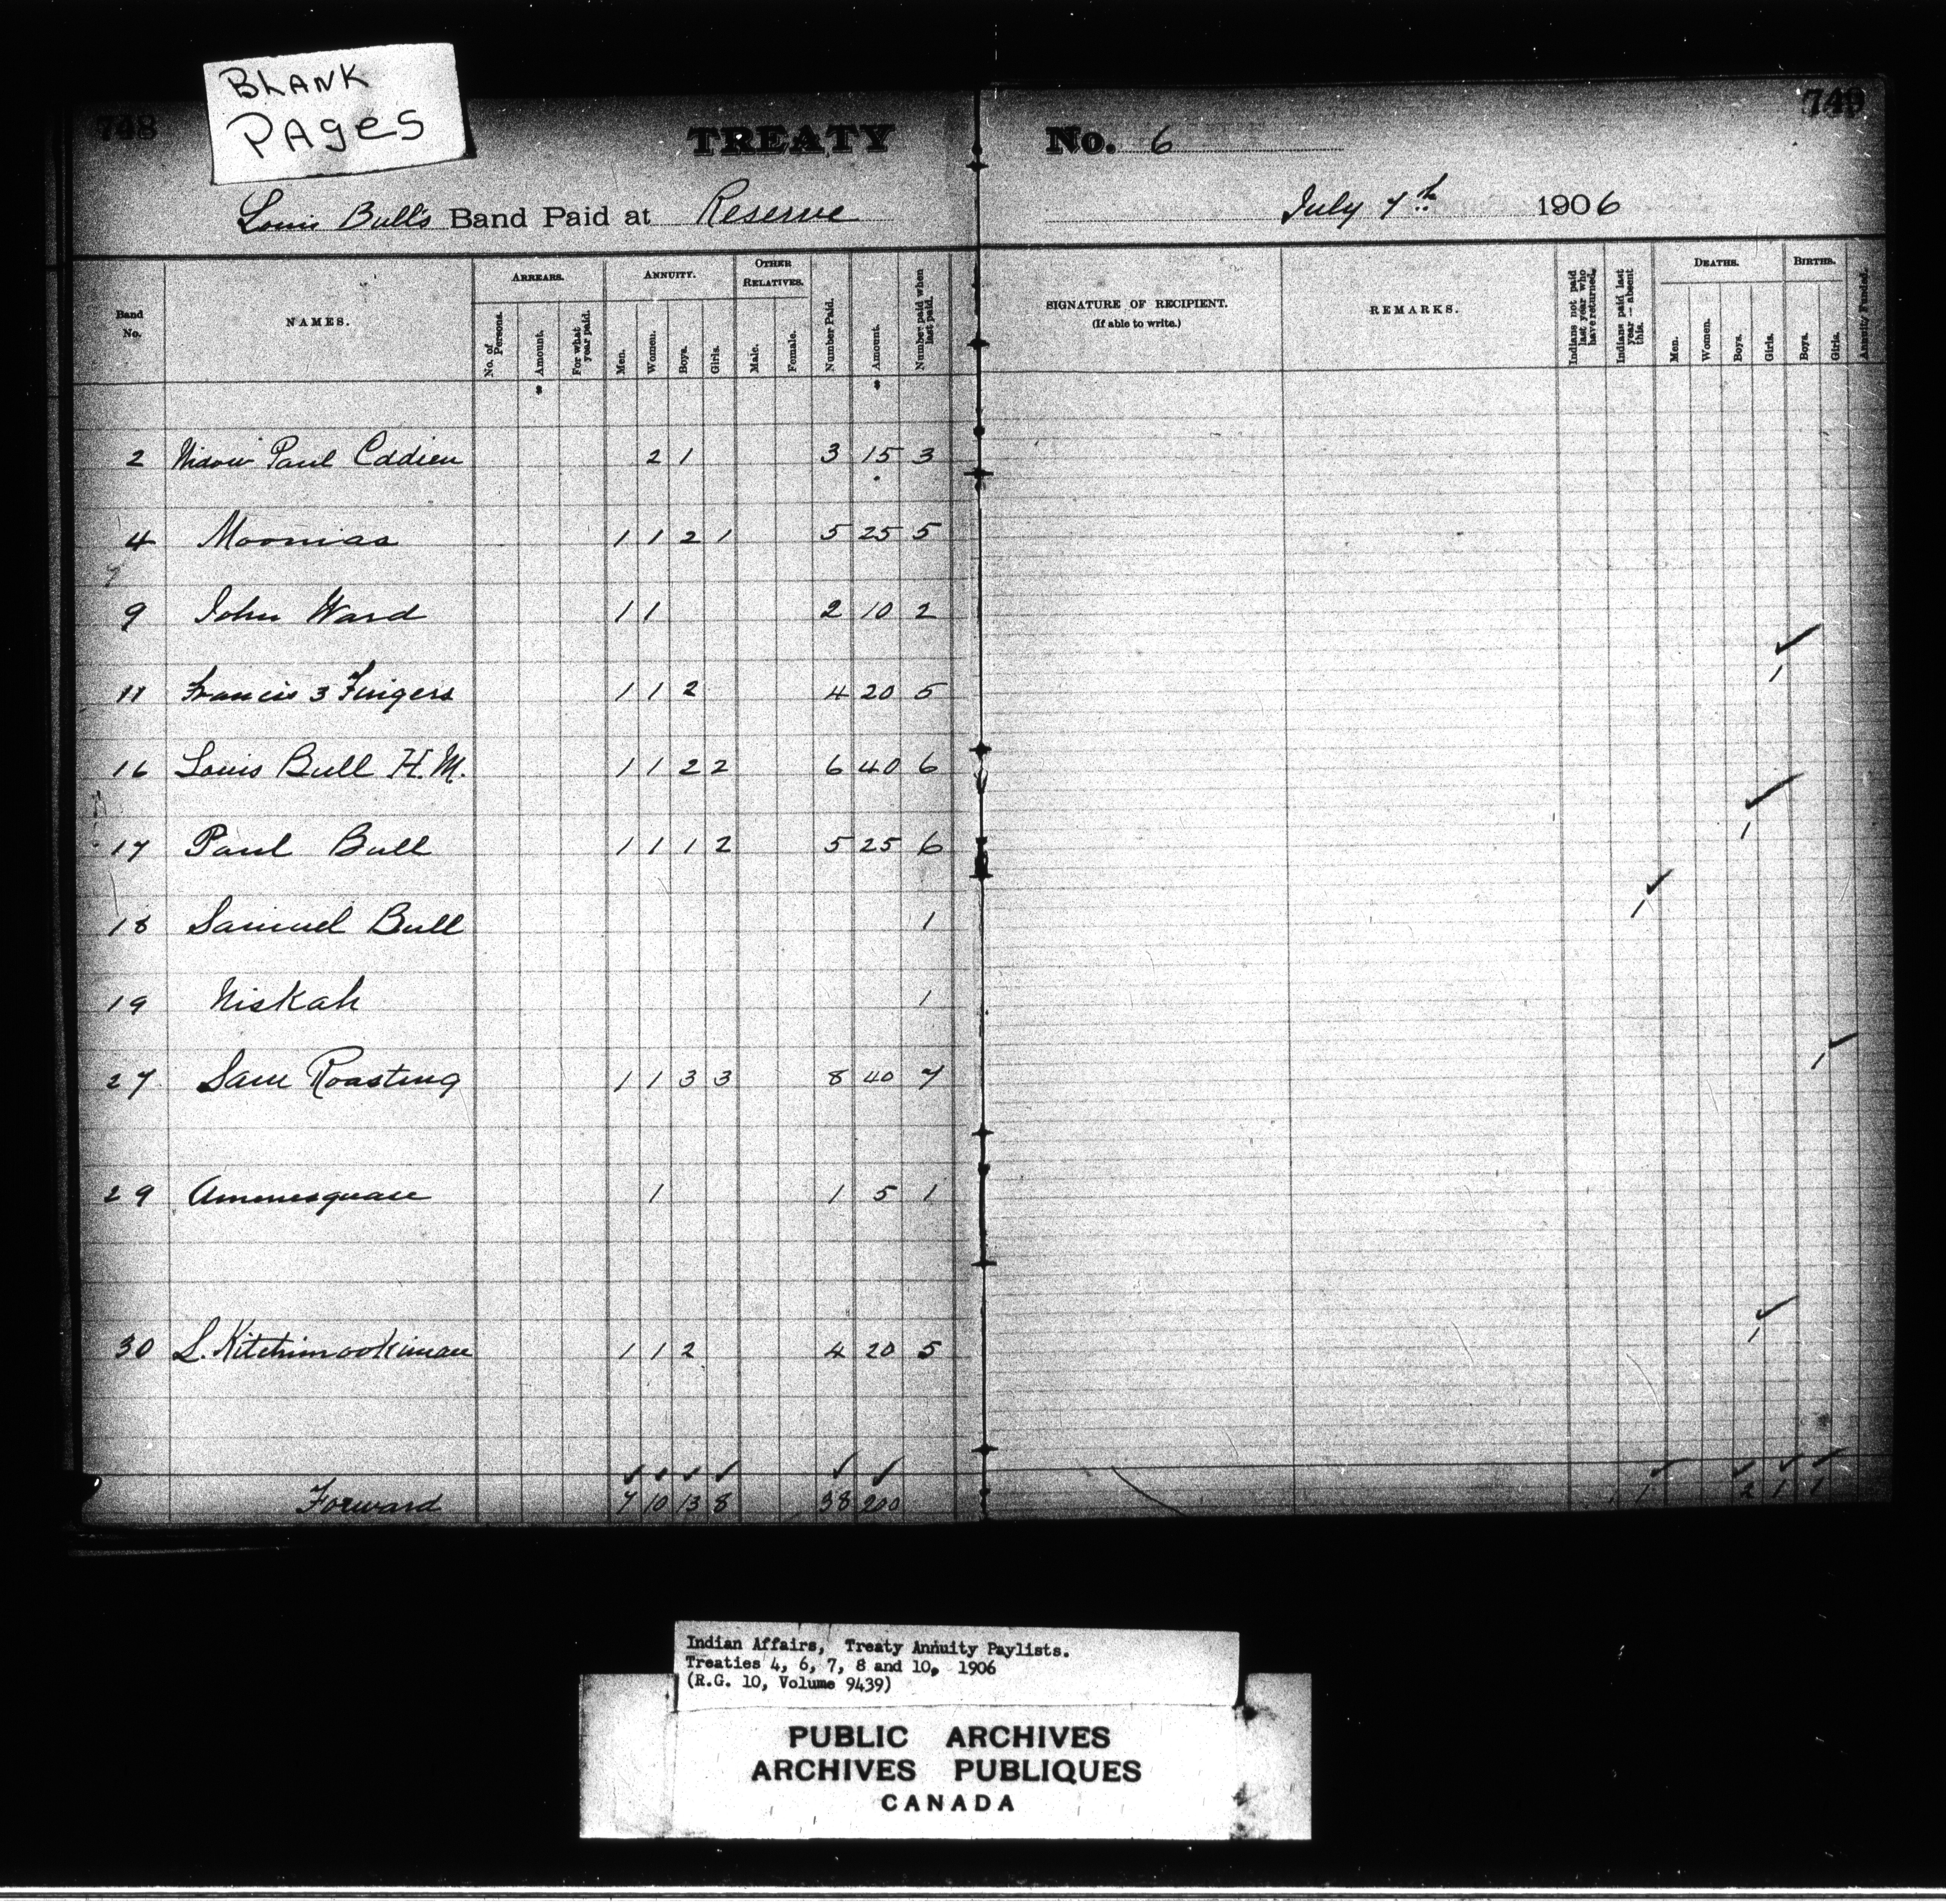 BLANK
PAGES
748
749
TREATY No. 6
Louis Bull's Band Paid at Reserve July 7th 1906
Band No. NAMES. ARREARS. No. of Persons. Amount. For what year paid. ANNUITY. Men. Women. Boys. Girls. OTHER RELATIVES. Male. Female. Number Paid. Amount. Number paid when last paid. SIGNATURE OF RECIPIENT. (If able to write.) REMARKS. Indians not paid last year who have returned. Indians paid last year — absent this. DEATHS. Men. Women. Boys. Girls. BIRTHS. Boys. Girls. Annuity Funded.
2 Widow Paul 2 1 3 15 3
4 Moonias 1 1 2 1 5 25 5
9 John Ward 1 1 2 10 2
11 Francis 3 Fingers 1 1 2 4 20 5 1
16 Louis Bull H.M. 1 1 2 2 6 40 6
17 Paul Bull 1 1 1 2 5 25 6 1
18 Samuel Bull 1 1
19 Niskah 1
27 Sam Roasting 1 1 3 3 8 40 7 1
29 1 1 5 1
30 L. Kitchimookiman 1 1 2 4 20 5 1
Forward 7 10 13 8 38 200 1 2 1 1
Indian Affairs, Treaty Annuity Paylists.
Treaties 4, 6, 7, 8 and 10, 1906
(R.G. 10, Volume 9439)
PUBLIC ARCHIVES
ARCHIVES PUBLIQUES
CANADA